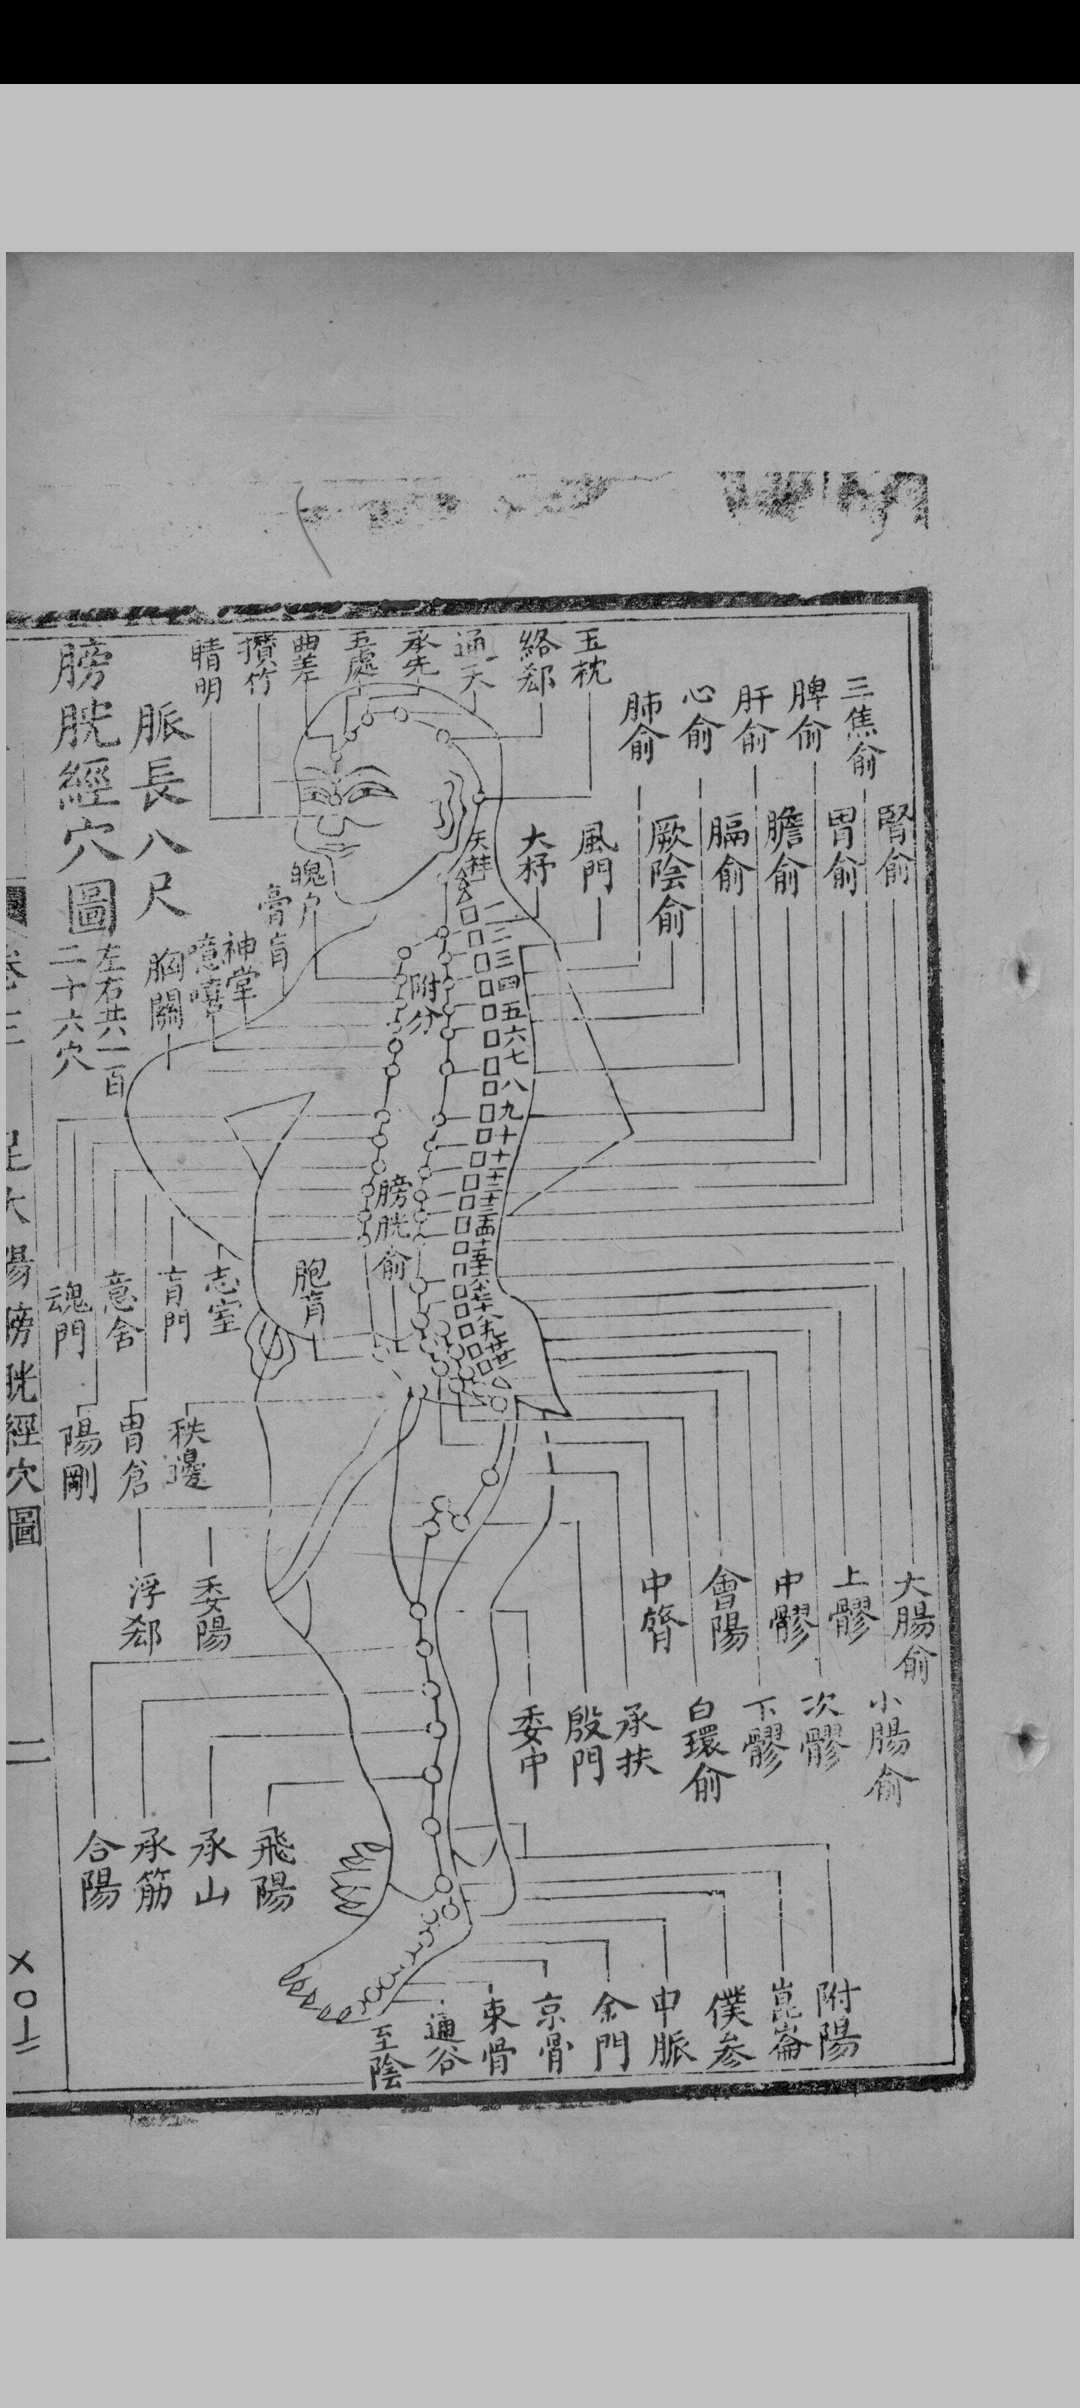 玉枕
絡郄
通天
承光
五處
曲差
攢竹
睛明
三焦俞
脾俞
肝俞
心俞
肺俞
腎俞
胃俞
膽俞
膈俞
厥陰俞
風門
大杼
天柱
一
二
三
四
五
六
七
八
九
十
十一
十二
十三
十四
十五
十六
十七
十八
十九
二十
附分
魄户
膏肓
神堂
噫嘻
胸關
膀胱俞
胞肓
志室
肓門
意舍
魂門
秩邊
胃倉
陽剛
委陽
浮郄
大腸俞
上髎
中髎
會陽
中膂
小腸俞
次髎
下髎
白環俞
承扶
殷門
委中
飛陽
承山
承筋
合陽
附陽
崑崙
僕参
申脈
金門
京骨
束骨
通谷
至陰
脈長八尺
膀胱經穴圖
左右共一百
二十六穴
卷三
足太陽膀胱經穴圖
二